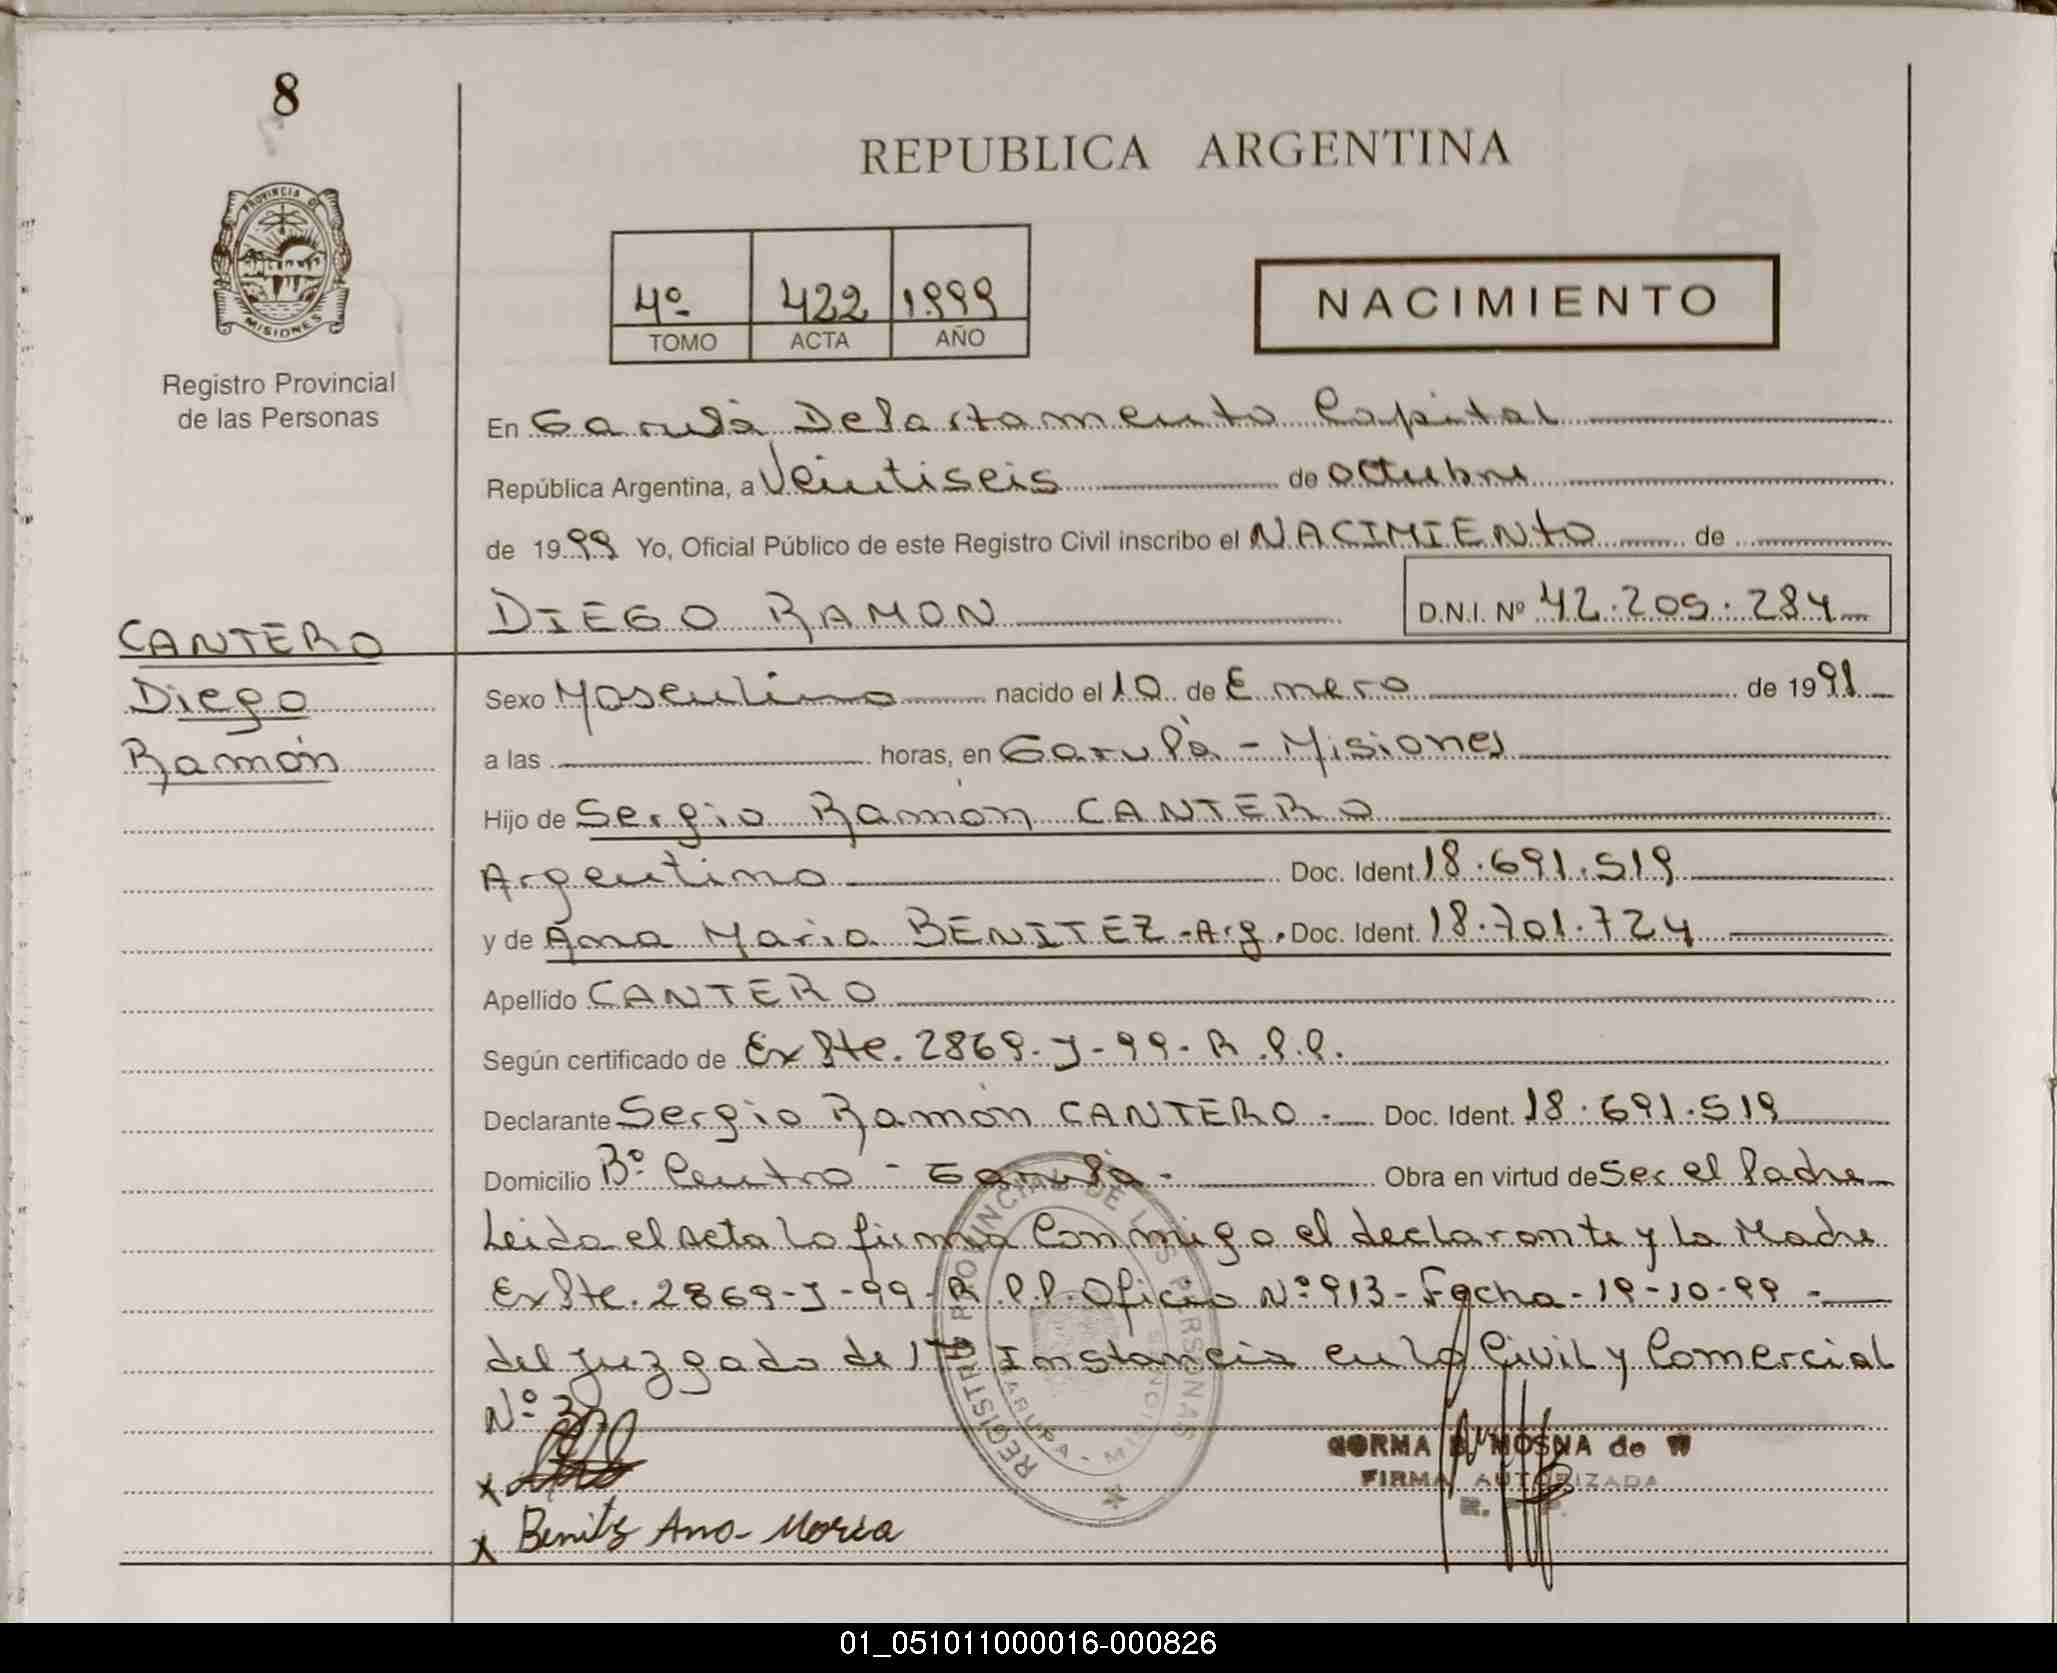 8
REPUBLICA ARGENTINA
PROVINCIA DE
MISIONES
Registro Provincial
de las Personas
4º 422 1999
TOMO ACTA AÑO
NACIMIENTO
En Garupá Departamento Capital
República Argentina, a Veintiseis de octubre
de 1999 Yo, Oficial Público de este Registro Civil inscribo el NACIMIENTO de
DIEGO RAMON D.N.I. Nº 42.205.284
CANTERO
Diego
Ramón
Sexo Masculino nacido el 10 de Enero de 1991
a las horas, en Garupá - Misiones
Hijo de Sergio Ramón CANTERO
Argentino Doc. Ident. 18.691.519
y de Ana Maria BENITEZ - Arg. Doc. Ident. 18.701.724
Apellido CANTERO
Según certificado de Expte. 2869-J-99-R.P.P.
Declarante Sergio Ramón CANTERO.- Doc. Ident. 18.691.519
Domicilio Bº Centro - Garupá - Obra en virtud de Ser el Padre
Leida el acta la firma conmigo el declarante y la Madre
Expte. 2869-J-99-R.P.P. Oficio Nº 913 - Fecha - 19-10-99 -
del juzgado de 1ra Instancia en lo Civil y Comercial
Nº 3
REGISTRO PROVINCIAL DE LAS PERSONAS
GARUPA - MISIONES
MOSNA de
FIRMA AUTORIZADA
R. P. P.
x
x Benitz Ana Maria
01_051011000016-000826